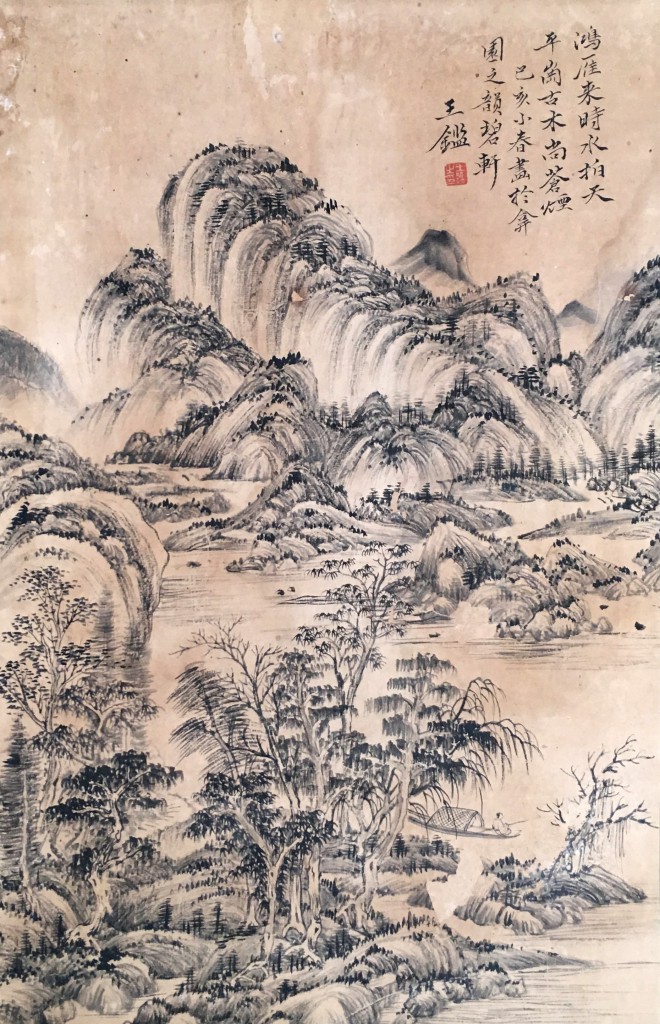 鴻雁来時水拍天
平崗古木尚蒼煙
己亥小春畫於弇
園之韻碧軒
王鑑